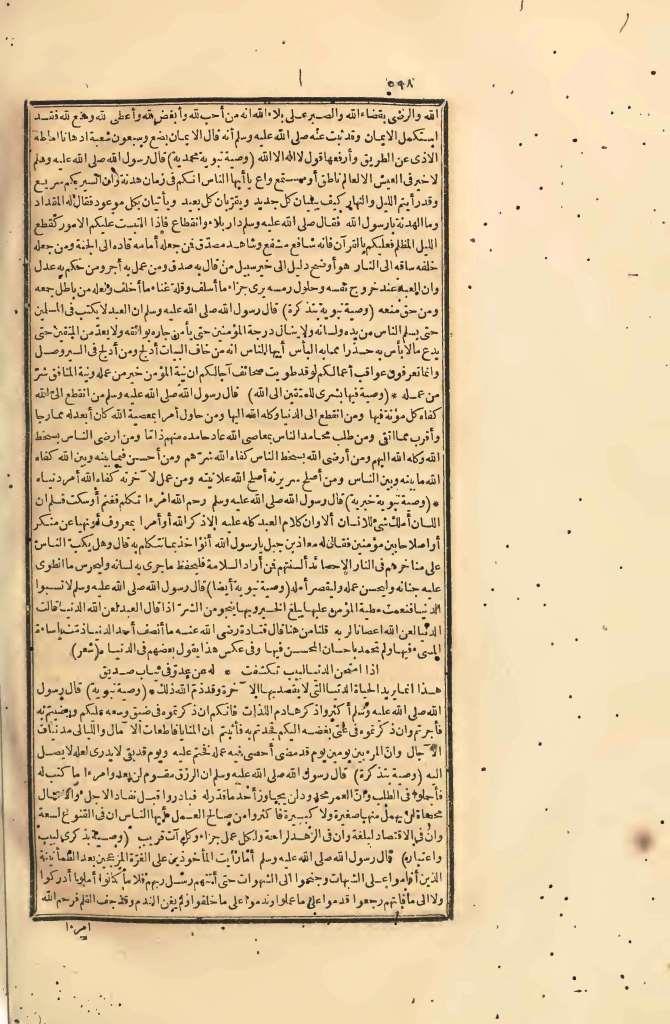 ٥٩٨
الله والرضى بقضاء الله والصبر على بلاء الله انه من أحب لله وأبغض لله وأعطى لله ومنع لله فقد
استكمل الايمان وقد ثبت عنه صلى الله عليه وسلم أنه قال الايمان بضع وسبعون شعبة ادناها اماطة
الاذى عن الطريق وأرفعها قول لا اله الا الله (وصية نبوية محمدية) قال رسول الله صلى الله عليه وسلم
لا خير فى العيش الا لعالم ناطق أو مستمع واع يا أيها الناس انكم فى زمان هدنة وان السير بكم سريع
وقد رأيتم الليل والنهار كيف يبليان كل جديد ويقربان كل بعيد ويأتيان بكل موعود فقال له المقداد
وما الهدنة يا رسول الله فقال صلى الله عليه وسلم دار بلاء وانقطاع فاذا التبست عليكم الامور كقطع
الليل المظلم فعليكم بالقرآن فانه شافع مشفع وشاهد مصدّق فمن جعله أمامه قاده الى الجنة ومن جعله
خلفه ساقه الى النار هو أوضح دليل الى خير سبيل من قال به صدق ومن عمل به أجر ومن حكم به عدل
وان العبد عند خروج نفسه وحلول رمسه يرى جزاء ما أسلف وقلة غناء ما أخلف ولعله من باطل جمعه
ومن حق منعه (وصية نبوية بتذكرة) قال رسول الله صلى الله عليه وسلم ان العبد لا يكتب فى المسلمين
حتى يسلم الناس من يده ولسانه ولا ينال درجة المؤمنين حتى يأمن جاره بوائقه ولا يعدّ من المتقين حتى
يدع ما لا بأس به حذرا مما به البأس أيها الناس انه من خاف البيات أدلج ومن أدلج فى السير وصل
وانما تعرفون عواقب أعمالكم لو قد طويت صحائف آجالكم ان نية المؤمن خير من عمله ونية المنافق شرّ
من عمله * (وصية فيها بشرى للمتقين الى الله) قال رسول الله صلى الله عليه وسلم من انقطع الى الله
كفاه كل مؤنة فيها ومن انقطع الى الدنيا وكله الله اليها ومن حاول أمرا بمعصية الله كان أبعد له مما رجا
وأقرب مما اتقى ومن طلب محامد الناس بمعاصى الله عاد حامده منهم ذامّا ومن ارضى الناس بسخط
الله وكله الله اليهم ومن أرضى الله بسخط الناس كفاه الله شرّهم ومن أحسن فيما بينه وبين الله كفاه
الله ما بينه وبين الناس ومن أصلح سريرته أصلح الله علانيته ومن عمل لآخرته كفاه الله أمر دنياه
* (وصية نبوية خبرية) قال رسول الله صلى الله عليه وسلم رحم الله امرءا تكلم فغنم أو سكت فسلم ان
اللسان أملك شئ للانسان ألا وان كلام العبد كله عليه الا ذكر الله أو أمرا بمعروف أو نهيا عن منكر
أو اصلاحا بين مؤمنين فقال له معاذ بن جبل يا رسول الله أنؤاخذ بما نتكلم به قال وهل يكب الناس
على مناخرهم فى النار الا حصائد ألسنتهم فمن أراد السلامة فليحفظ ما جرى به لسانه وليحرس ما انطوى
عليه جنانه وليحسن عمله وليقصر أمله (وصية نبوية أيضا) قال رسول الله صلى الله عليه وسلم لا تسبوا
الدنيا فنعمت مطية المؤمن عليها يبلغ الخير وبها ينجو من الشرّ اذا قال العبد لعن الله الدنيا قالت
الدنيا لعن الله اعصانا لربه قلنا من هنا قال قتادة رضى الله عنه ما أنصف أحد الدنيا ذمت باساءة
المسىء فيها ولم تحمد باحسان المحسن فيها وفى عكس هذا يقول بعضهم فى الدنيا * (شعر)
اذا امتحن الدنيا لبيب تكشفت * له عن عدوّ فى ثياب صديق
هذا انما يريد الحياة الدنيا التى لا يقصد بها الآخرة وقد ذم الله ذلك * (وصية نبوية) قال رسول
الله صلى الله عليه وسلم أكثروا ذكر هاذم اللذات فانكم ان ذكرتموه فى ضيق وسعه عليكم ورضيتم به
فأجرتم وان ذكرتموه فى غنى بغضه اليكم فجدتم به فأثبتم ان المنايا قاطعات الآمال والليالى مدنيات
الآجال وان المرء بين يومين يوم قد مضى أحصى فيه عمله فختم عليه ويوم قد بقى لا يدرى لعله لا يصل
اليه (وصية بتذكرة) قال رسول الله صلى الله عليه وسلم ان الرزق مقسوم لن يعدو امرءا ما كتب له
فأجملوا فى الطلب وان العمر محدود لن يجاوز أحد ما قدّر له فبادروا قبل نفاد الاجل والاعمال
محصاة لن يهمل منها صغيرة ولا كبيرة فأكثروا من صالح العمل أيها الناس ان فى القنوع لسعة
وان فى الاقتصاد لبلغة وان فى الزهد لراحة ولكل عمل جزاء وكل آت قريب (وصية بذكرى لبيب
واعتباره) قال رسول الله صلى الله عليه وسلم أما رأيت المأخوذين على الغرّة المزعجين بعد الطمأنينة
الذين أقاموا على الشبهات وجنحوا الى الشهوات حتى أتتهم رسل ربهم فلا ما كانوا أملوا أدركوا
ولا الى ما فاتهم رجعوا قدموا على ما عملوا وندموا على ما خلفوا ولم يغن الندم وقد جف القلم فرحم الله
امرءا